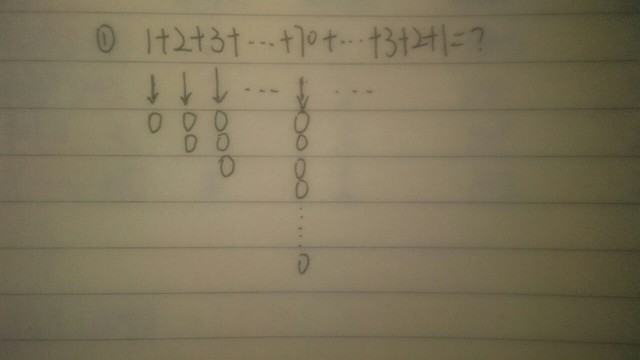 ① 1+2+3+…+70+…+3+2+1=?
↓ ↓ ↓ … ↓ …
0 0 0 0
0 0 0
0 0
0
⋮
0